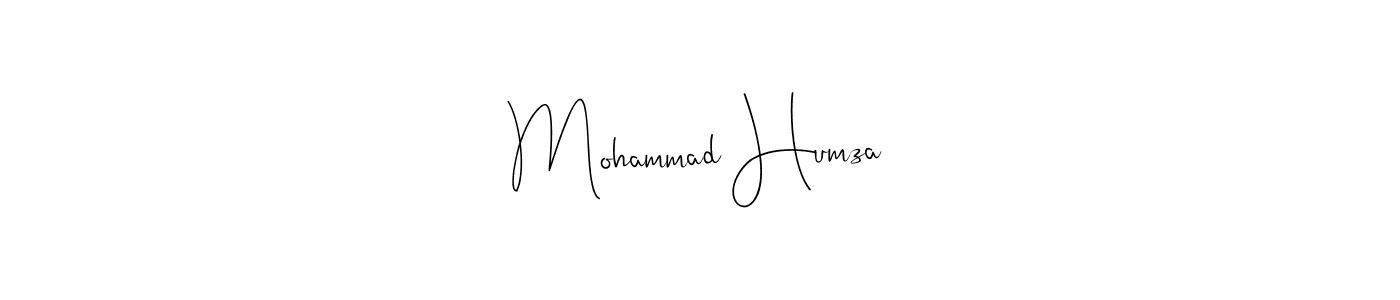 Mohammad Humza